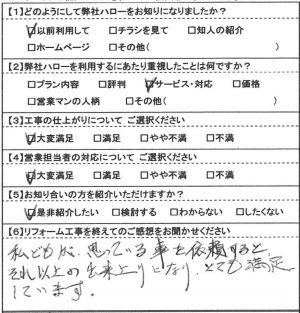 【1】どのようにして弊社ハローをお知りになりましたか?
☑以前利用して □チラシを見て □知人の紹介
□ホームページ □その他( )
【2】弊社ハローを利用するにあたり重視したことは何ですか?
□プラン内容 □評判 ☑サービス・対応 □価格
□営業マンの人柄 □その他( )
【3】工事の仕上がりについて ご選択ください
☑大変満足 □満足 □やや不満 □不満
【4】営業担当者の対応について ご選択ください
☑大変満足 □満足 □やや不満 □不満
【5】お知り合いの方を紹介いただけますか?
☑是非紹介したい □検討する □わからない □したくない
【6】リフォーム工事を終えてのご感想をお聞かせください
私どもが、思っている事を依頼すると
それ以上の出来上りになり、とても満足
しています。